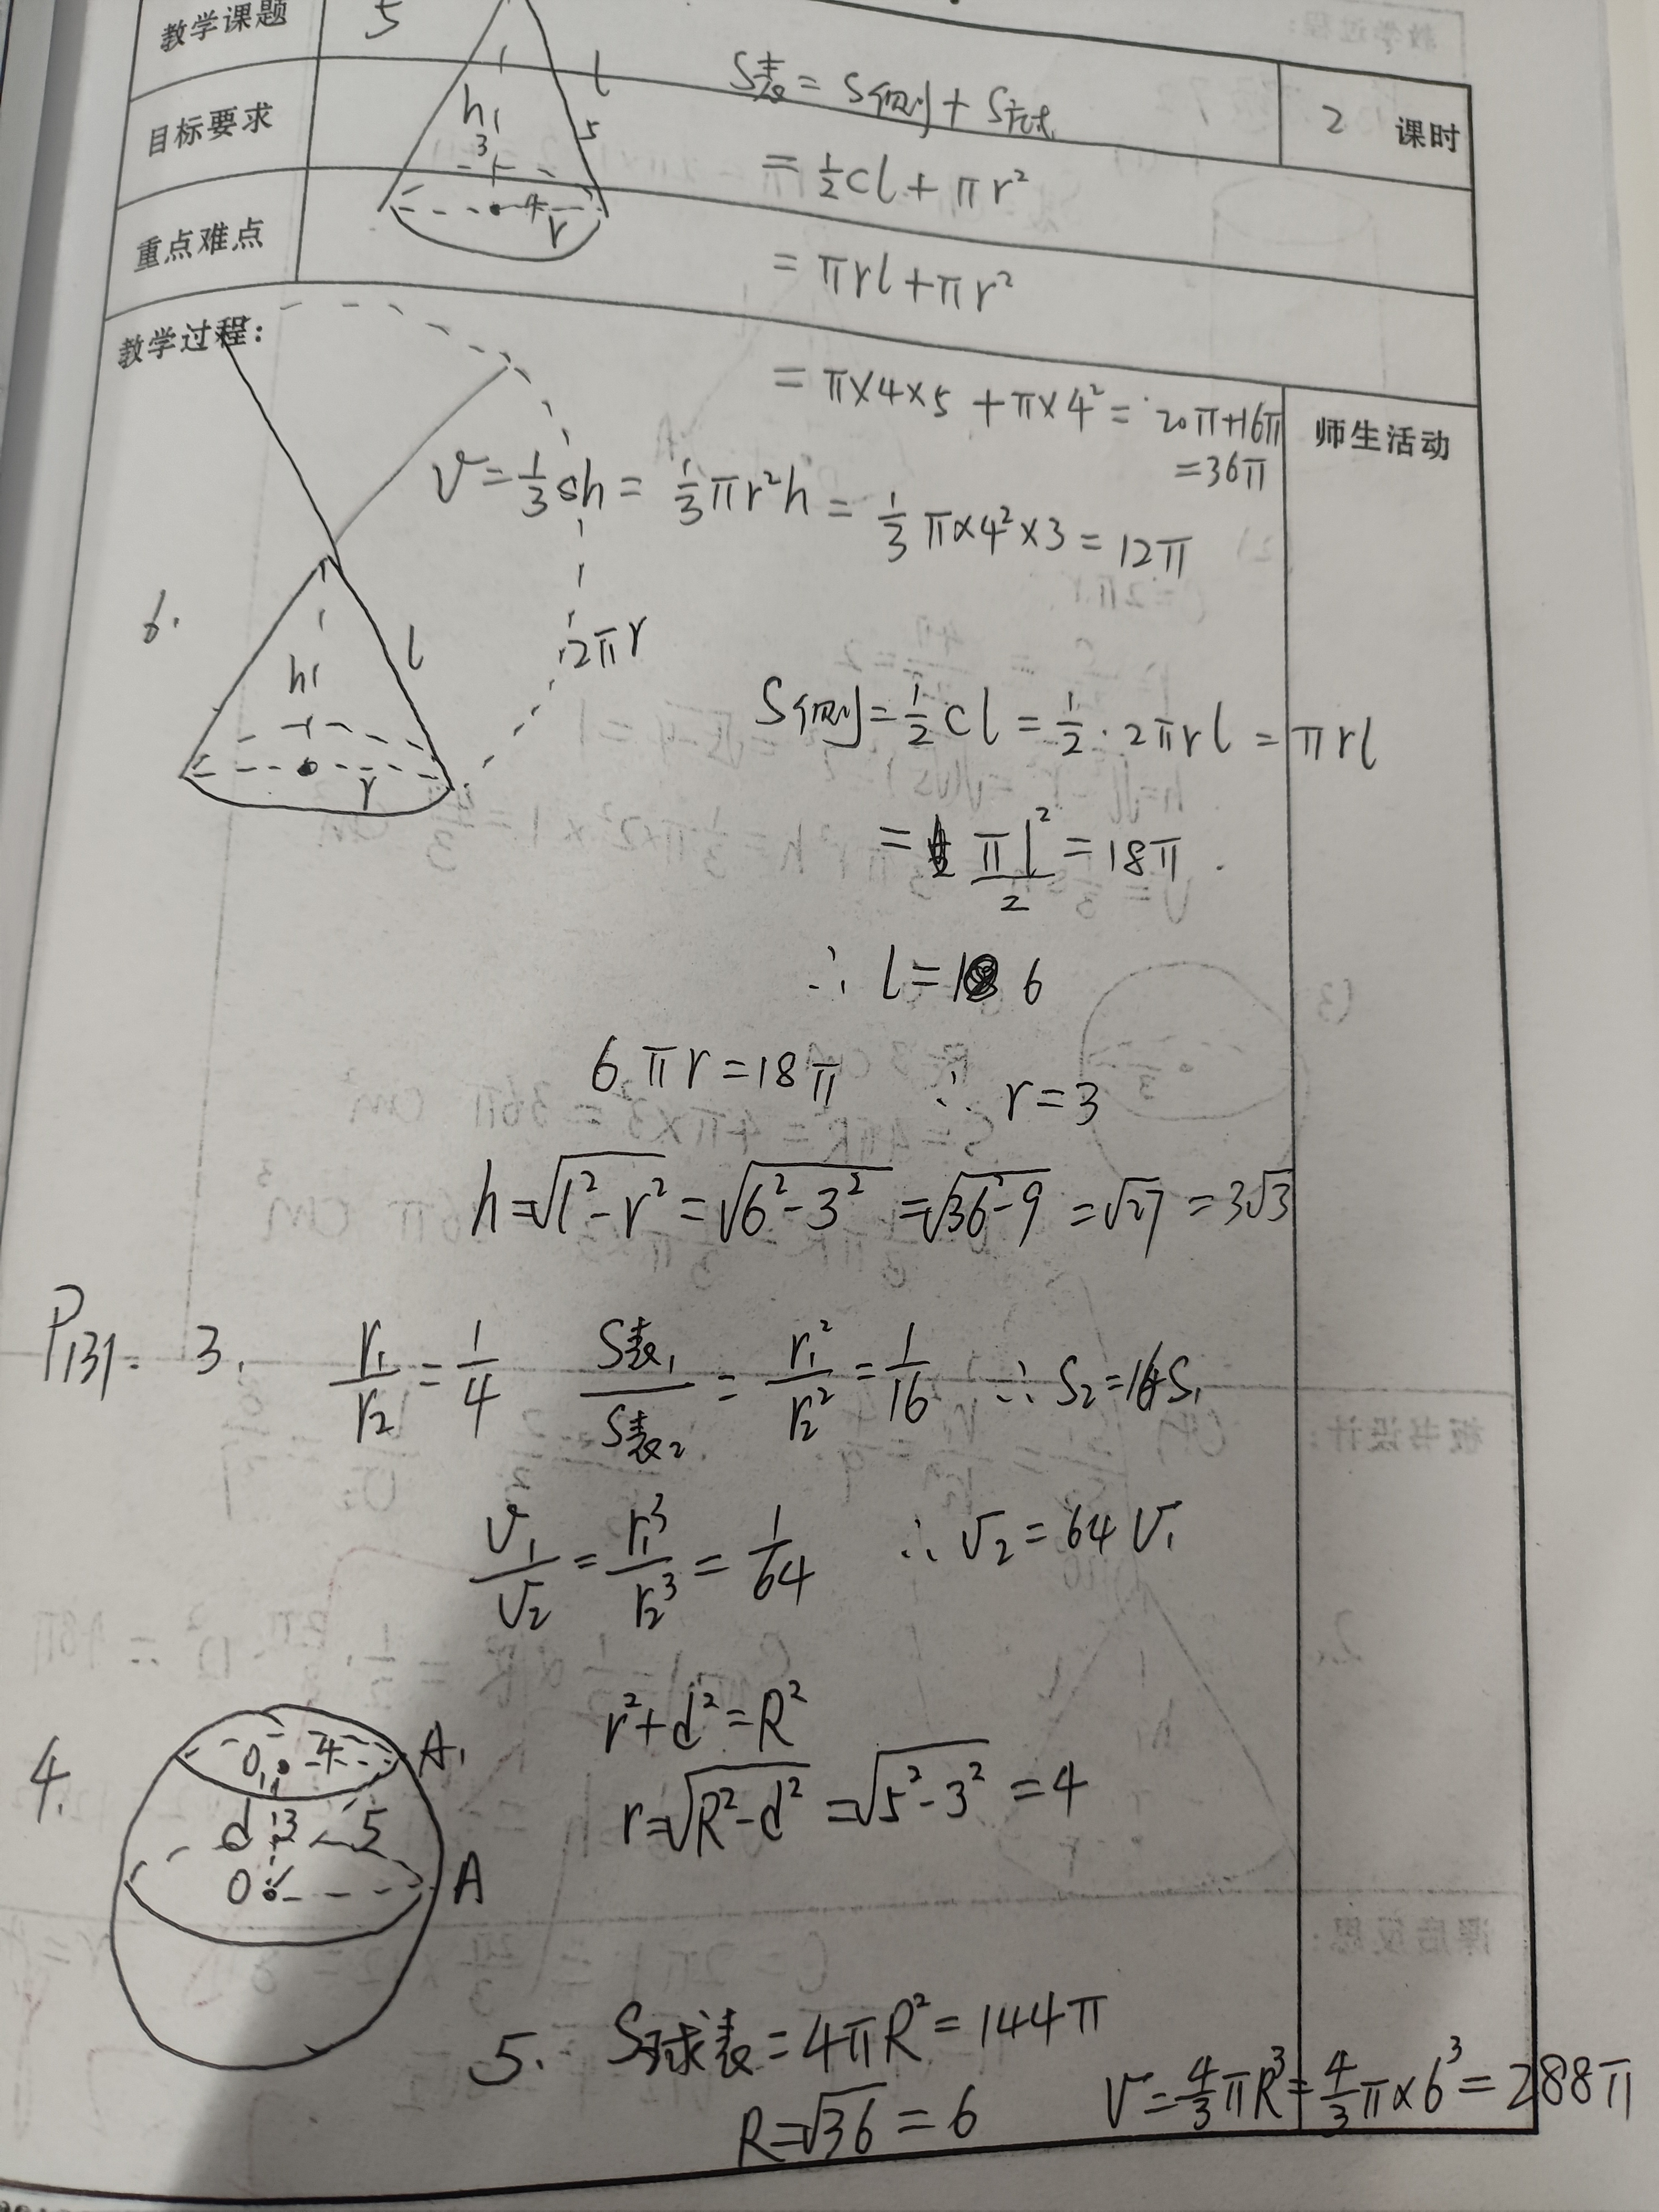 教学课题 5
l
h 3 5
4 r
S表=S侧+S底
2 课时
目标要求
=½cl+πr²
重点难点
=πrl+πr²
教学过程:
=π×4×5+π×4²=20π+16π
=36π
师生活动
V=⅓sh=⅓πr²h=⅓π×4²×3=12π
6.
h l 2πr
r
S侧=½cl=½·2πrl=πrl
=πl²/2=18π
∴ l=6
6πr=18π ∴ r=3
h=√(l²-r²)=√(6²-3²)=√(36-9)=√27=3√3
P131. 3. r₁/r₂=1/4 S表₁/S表₂=r₁²/r₂²=1/16 ∴ S₂=16S₁
V₁/V₂=r₁³/r₂³=1/64 ∴ V₂=64V₁
r²+d²=R²
4. O₁ 4 A₁
r=√(R²-d²)=√(5²-3²)=4
d 3 5
O A
5. S球表=4πR²=144π
R=√36=6 V=4/3πR³=4/3π×6³=288π